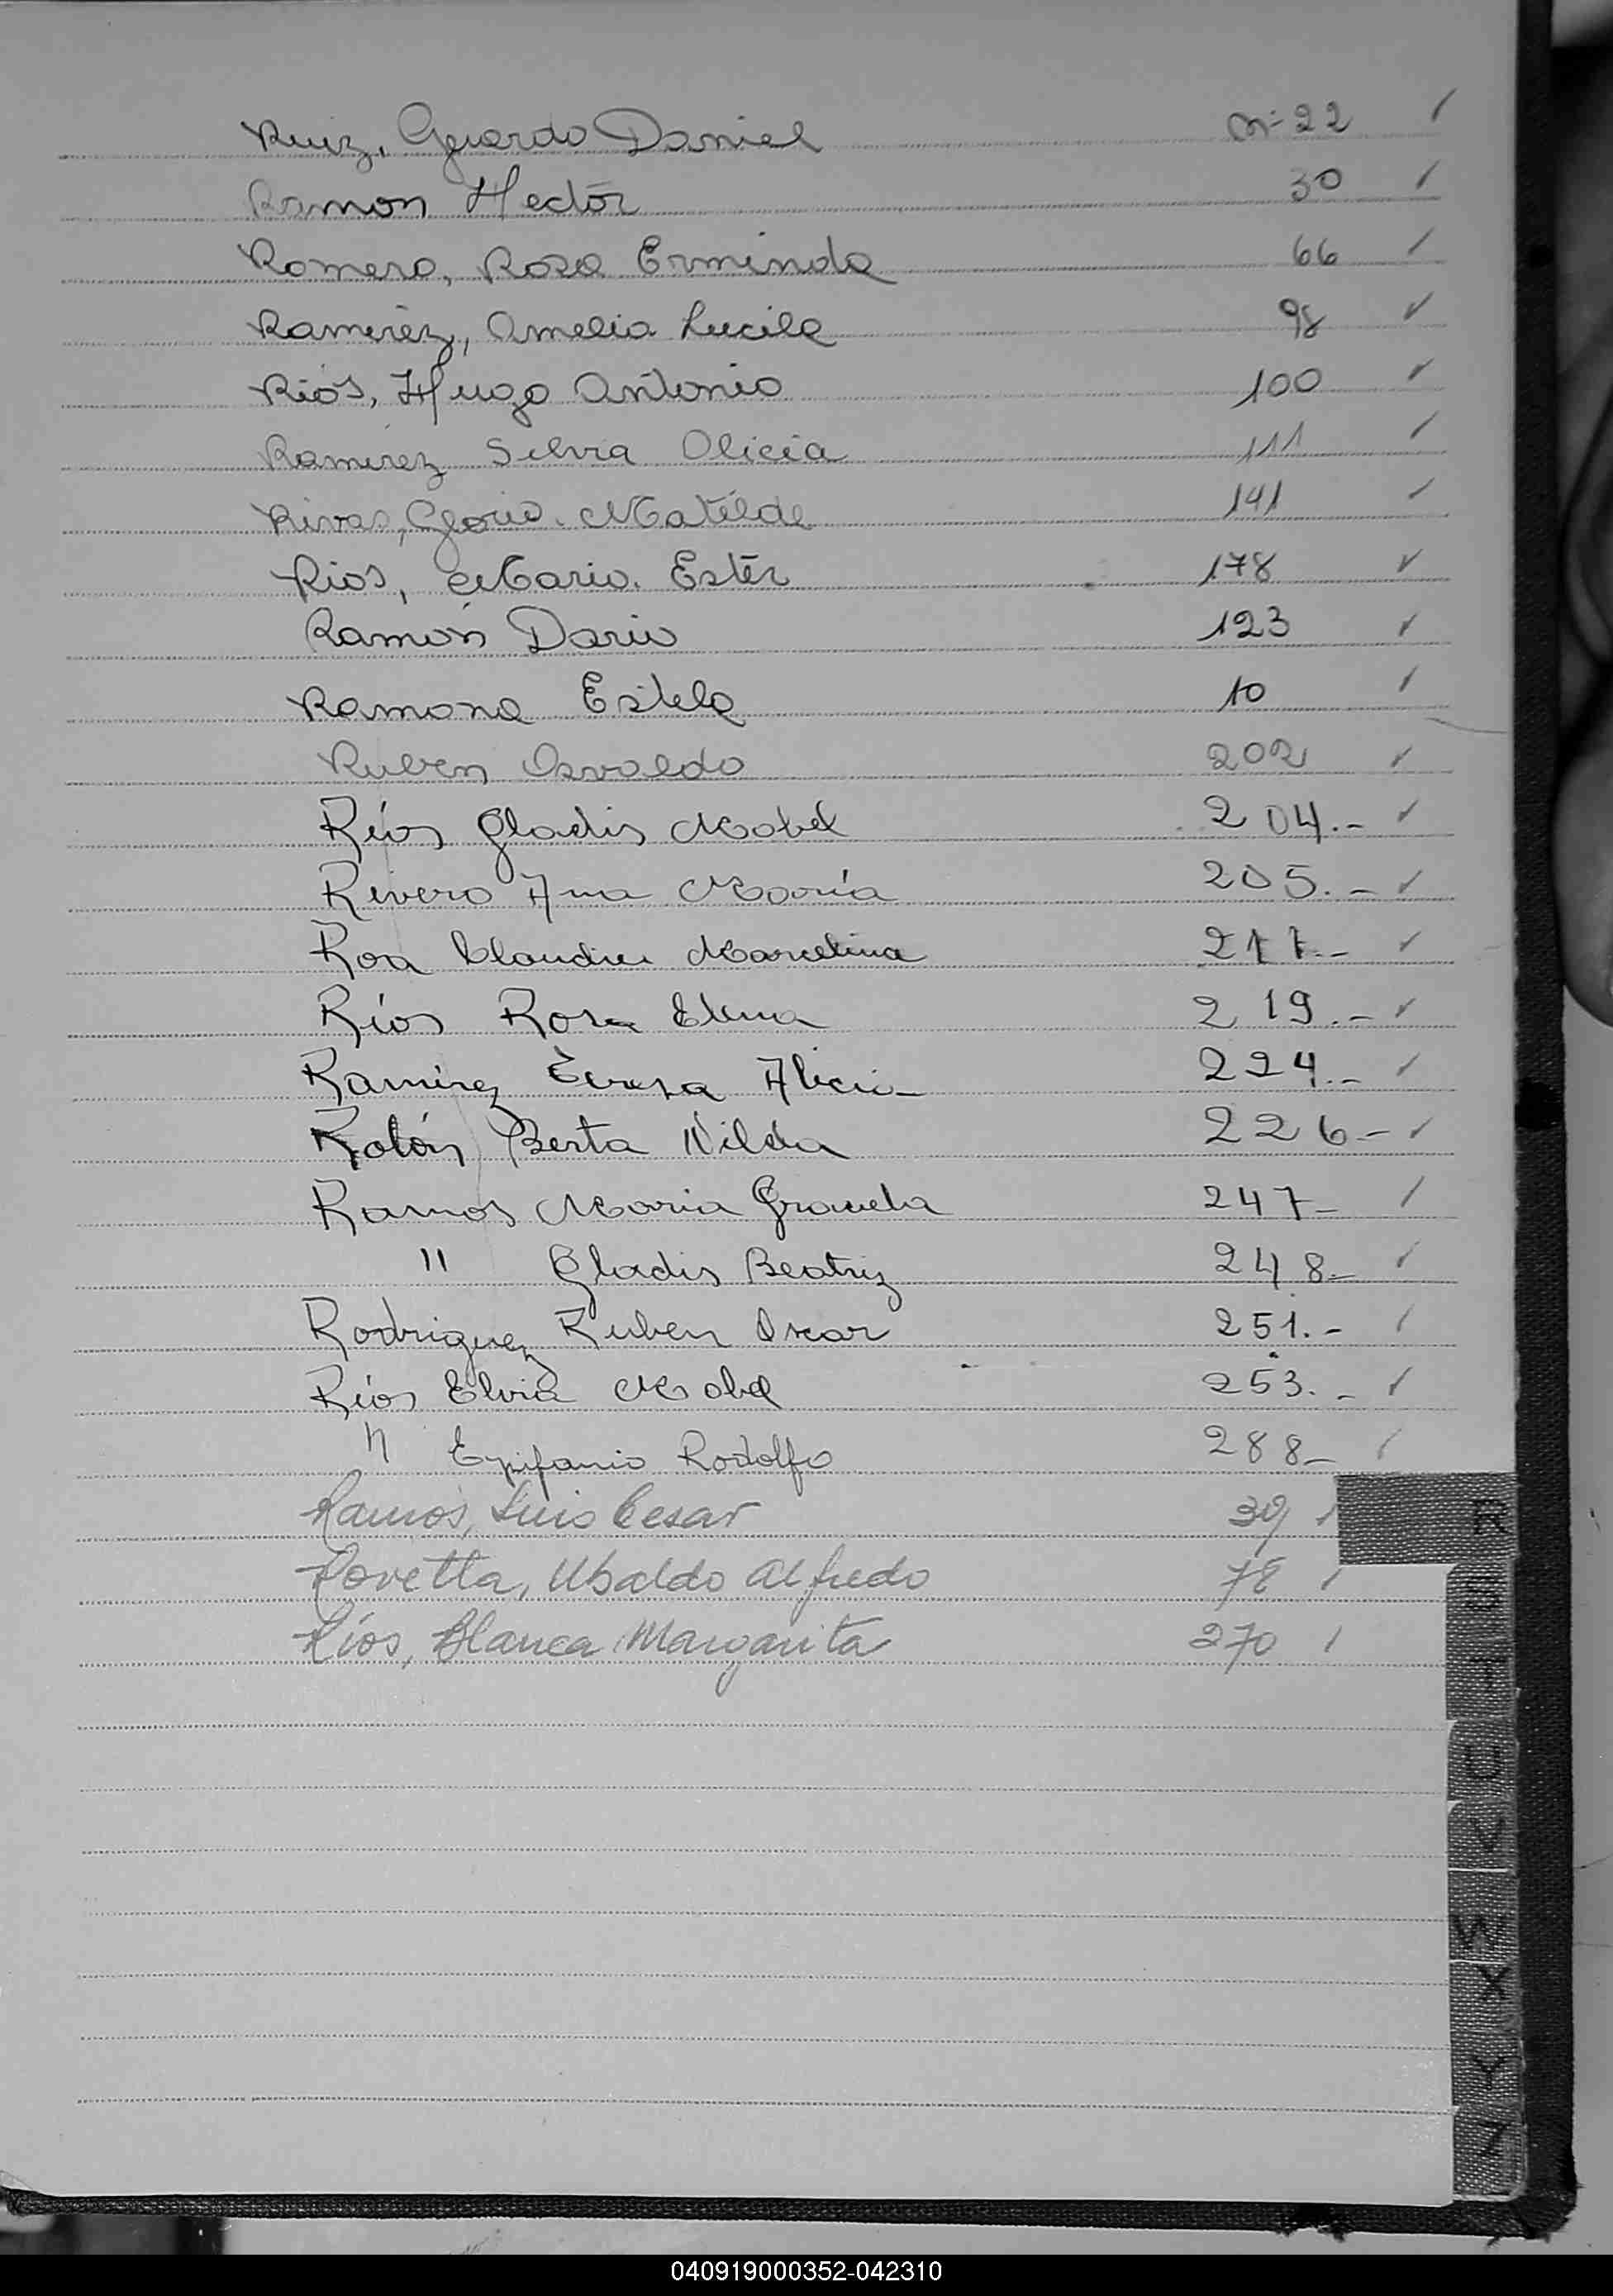 Ruiz, Gerardo Daniel nº 22 /
Ramon Hector 30 /
Romero, Rosa Erminda 66 /
Ramirez, Amelia Lucila 98 ✓
Rios, Hugo Antonio 100 ✓
Ramirez Silvia Alicia 111 /
Rivas, Gloria Matilde 141 ✓
Rios, Maria Ester 178 ✓
Ramón Dario 123 ✓
Ramona Estela 10 /
Ruben Osvaldo 202 ✓
Ríos Gladis Mabel 204.- ✓
Rivero Ana María 205.- ✓
Roa Claudia Marcelina 211.- ✓
Ríos Rosa Elena 219.- ✓
Ramirez Teresa Alicia 224.- ✓
Rolón Berta Nilda 226- ✓
Ramos Maria Graciela 247- /
" Gladis Beatriz 248- ✓
Rodriguez Ruben Oscar 251.- /
Ríos Elvia Mabel 253.- ✓
" Epifanio Rodolfo 288- /
Ramos, Luis Cesar 39 /
Rovetta, Ubaldo Alfredo 78 /
Ríos, Blanca Margarita 270 /
R
S
T
U
V
W
X
Y
Z
040919000352-042310